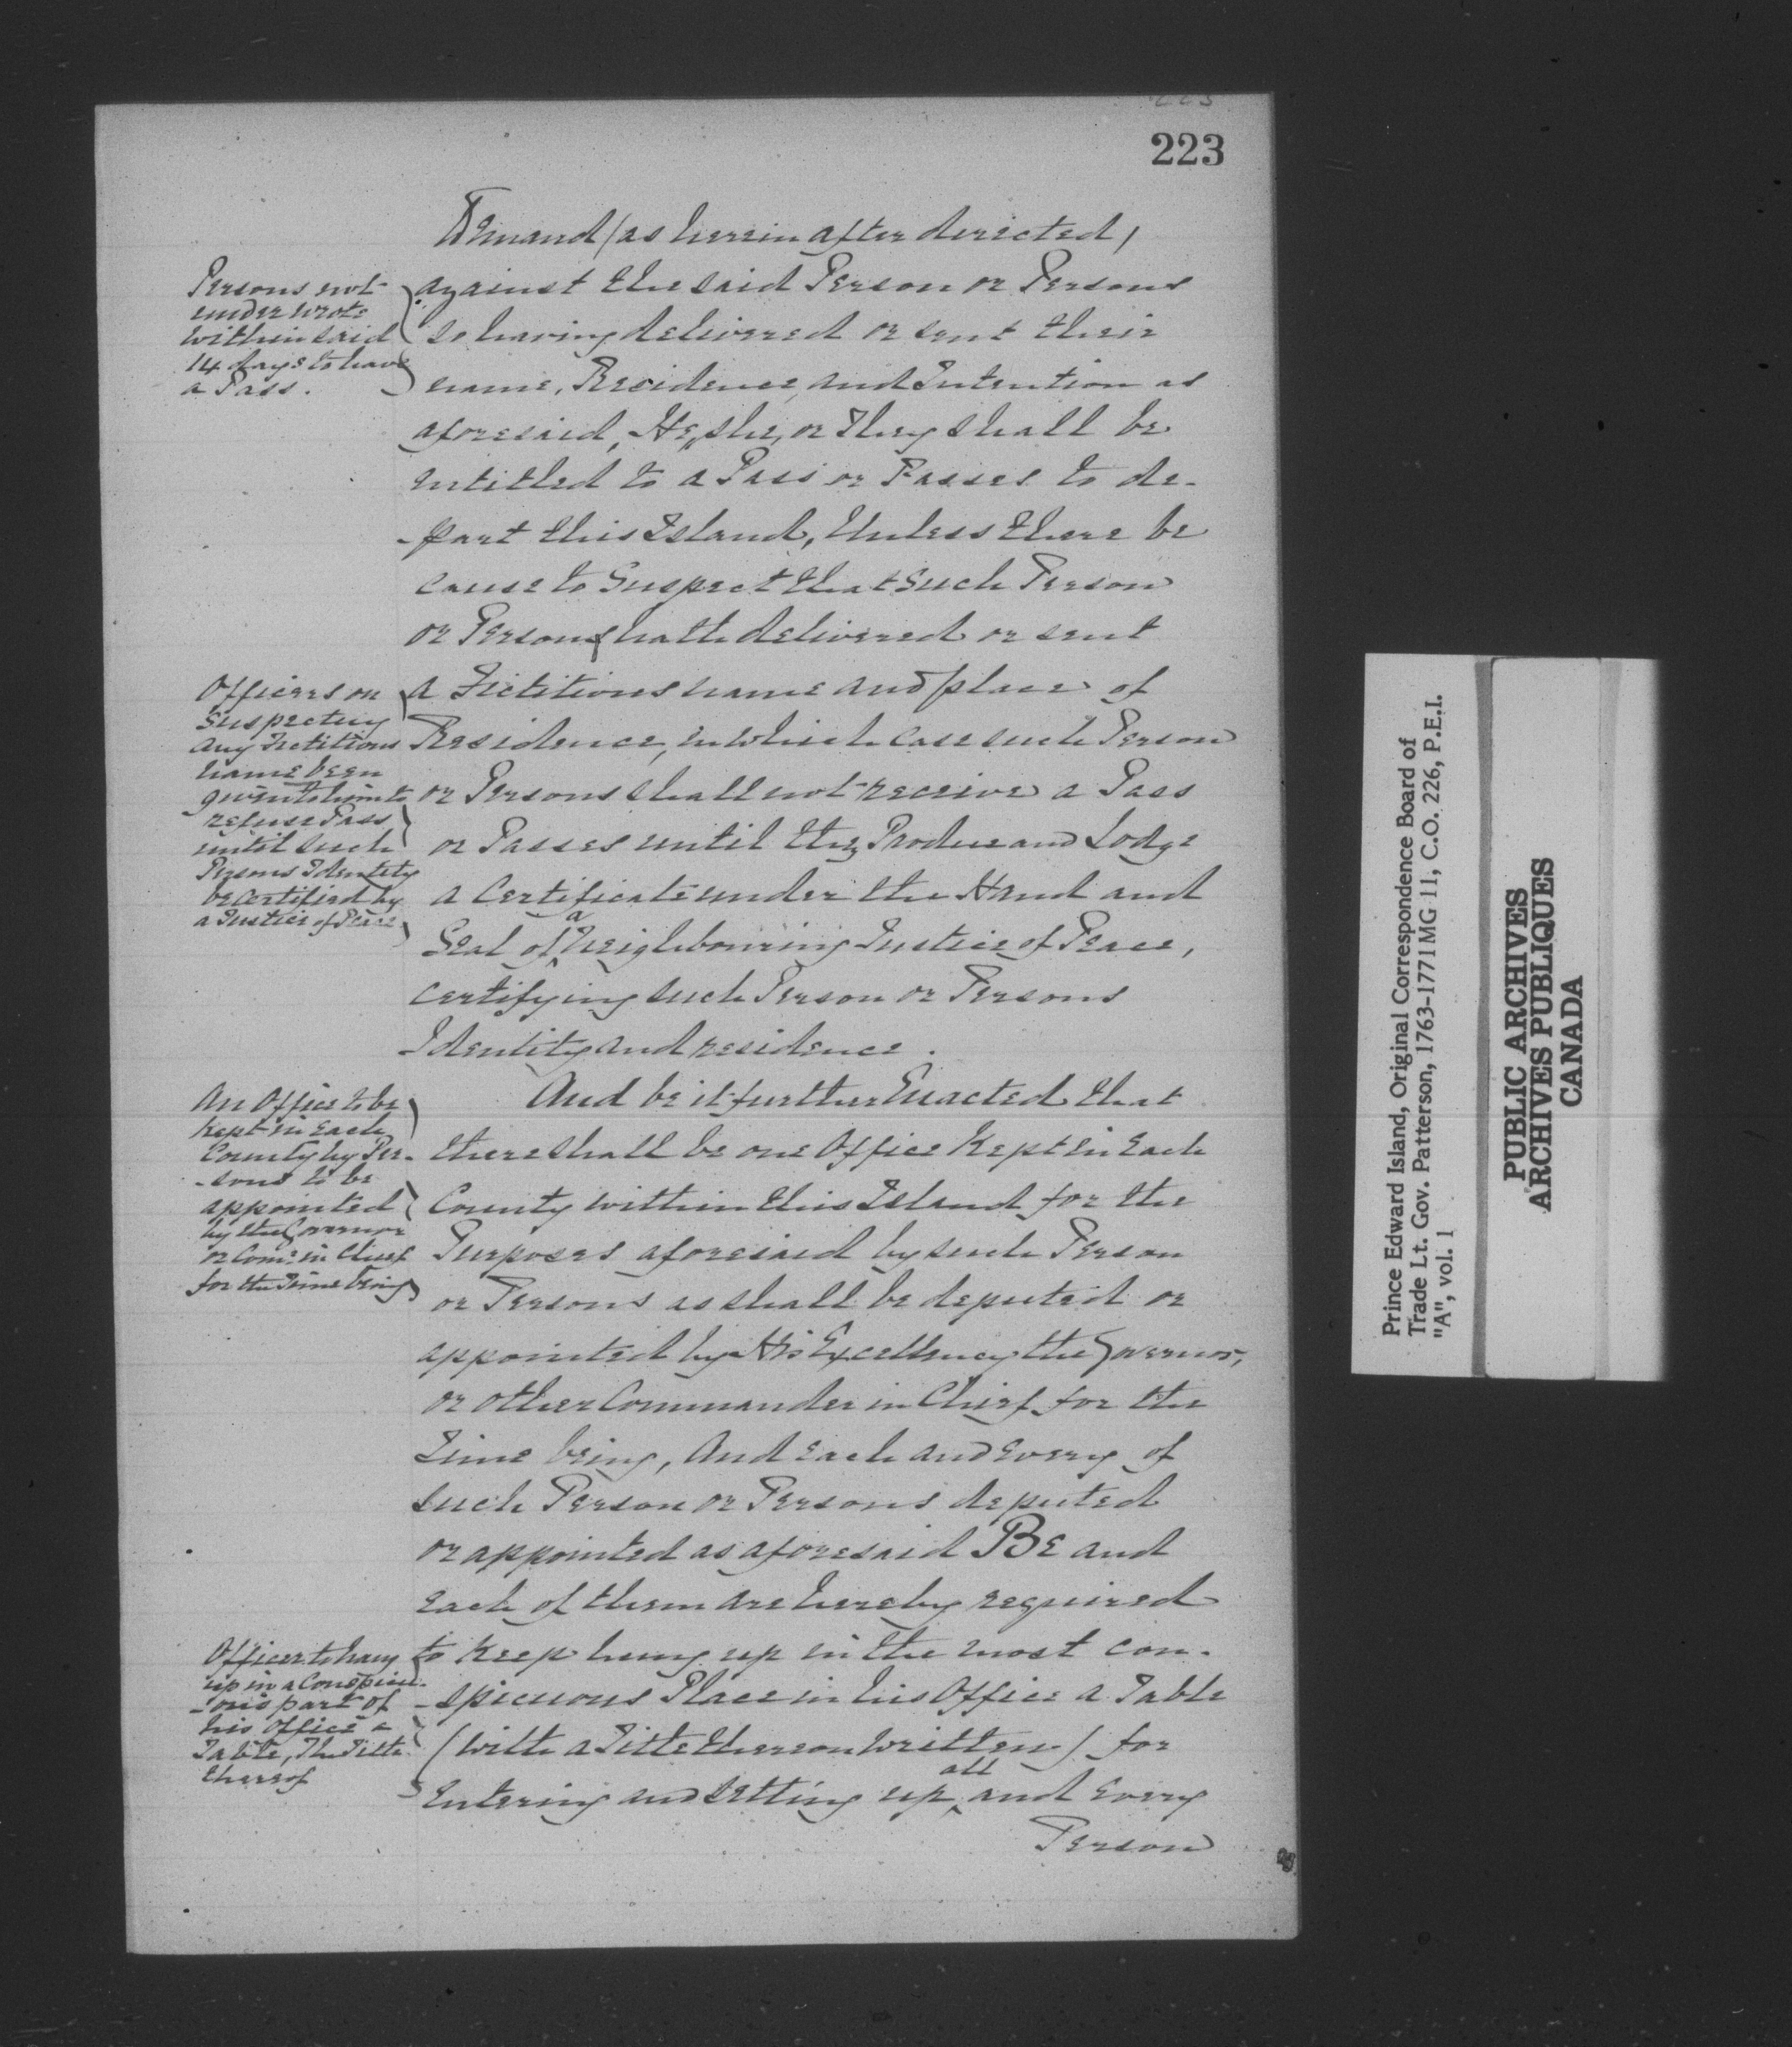 223
Demand (as herein after directed)
Persons not
under wrote
within said
14 days to have
a Pass.
against the said Person or Persons
so having delivered or sent their
name, Residence, and Intention as
aforesaid, He, she, or They shall be
intitled to a Pass or Passes to de-
-part this Island, Unless there be
cause to Suspect that Such Person
or Persons hath delivered or sent
Officers on
Suspecting
any Fictitious
name been
given to him to
refuse Pass
until such
Persons Identity
be certified by
a Justice of Peace
a Fictitious name and place of
Residence, in which case such Person
or Persons shall not receive a Pass
or Passes until they Produce and Lodge
a Certificate under the Hand and
Seal of a Neighbouring Justice of Peace,
certifying such Person or Persons
Identity and residence.
An Office to be
kept in Each
County by Per-
-sons to be
appointed
by the Governor
or Com: in Chief
for the Time being
And be it further Enacted that
there shall be one Office Kept in Each
County within this Island for the
Purposes aforesaid by such Person
or Persons as shall be deputed or
appointed by His Excellency the Governor,
or other Commander in Chief for the
Time being, And each and every of
such Person or Persons deputed
or appointed as aforesaid BE and
each of them are hereby required
Officer to hang
up in a Conspicu-
-ous part of
his office a
Table, The Title
thereof
to keep hung up in the most con-
-spicuous Place in his Office a Table
(with a Title thereon written) for
Entering and setting up all and every
Person
Prince Edward Island, Original Correspondence Board of
Trade Lt. Gov. Patterson, 1763-1771 MG 11, C.O. 226, P.E.I.
"A", vol. 1
PUBLIC ARCHIVES
ARCHIVES PUBLIQUES
CANADA